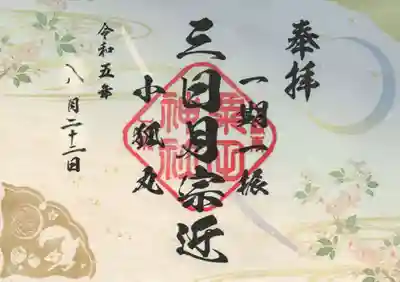 奉拝
一期一振
三日月宗近
小狐丸
粟田神社
令和五年
八月二十二日